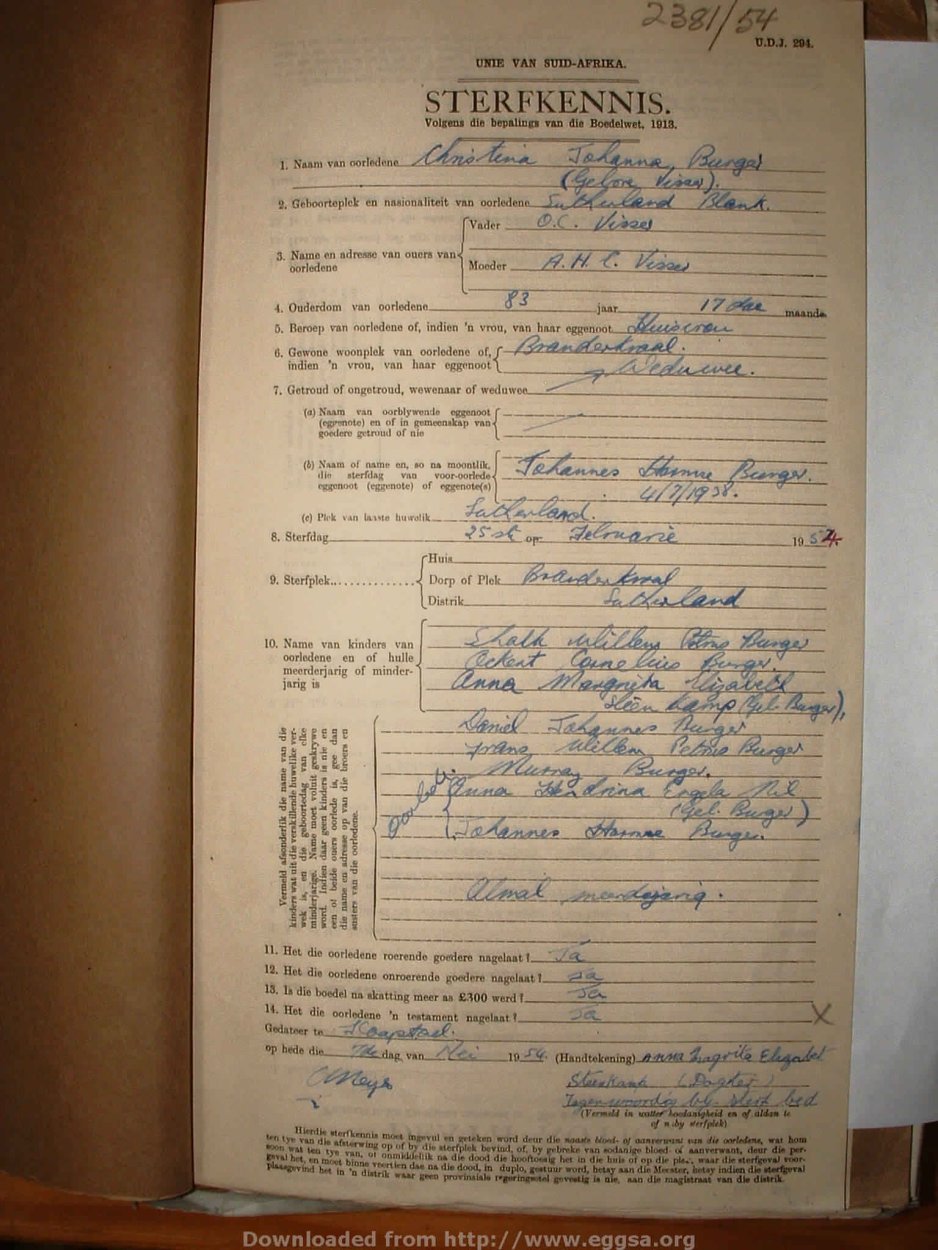 2381/54
U.D.J. 294.
UNIE VAN SUID-AFRIKA.
STERFKENNIS.
Volgens die bepalings van die Boedelwet, 1913.
1. Naam van oorledene Christina Johanna Burger
(Gebore Visser).
2. Geboorteplek en nasionaliteit van oorledene Sutherland Blank.
3. Name en adresse van ouers van oorledene
Vader O.C. Visser
Moeder A.H.C. Visser
4. Ouderdom van oorledene 83 jaar 17 dae maande
5. Beroep van oorledene of, indien 'n vrou, van haar eggenoot Huisvrou
6. Gewone woonplek van oorledene of, Branderkraal.
indien 'n vrou, van haar eggenoot Weduwee.
7. Getroud of ongetroud, wewenaar of weduwee
(a) Naam van oorblywende eggenoot
(eggenote) en of in gemeenskap van
goedere getroud of nie
(b) Naam of name en, so na moontlik, Johannes Burger.
die sterfdag van voor-oorlede
eggenoot (eggenote) of eggenote(s) 4/7/1938.
(c) Plek van laaste huwelik Sutherland.
8. Sterfdag 25ste op Februarie 1954.
9. Sterfplek
Huis
Dorp of Plek Branderkraal
Distrik Sutherland
10. Name van kinders van
oorledene en of hulle
meerderjarig of minder-
jarig is
Schalk Willem Petrus Burger
Ockert Cornelius Burger.
Anna Margrita Elizabeth
Steenkamp (Geb. Burger),
Daniel Johannes Burger
Frans Willem Petrus Burger
Murray Burger.
Anna Hendrina Engela Nel
(Geb. Burger)
Johannes Burger.
Almal meerderjarig.
Vermeld afsonderlik die name van die
kinders wat uit die verskillende huwelike ver-
wek is, en die geboortedag van elke
minderjarige. Name moet voluit geskrywe
word. Indien daar geen kinders is nie en
een of beide ouers oorlede is, gee dan
die name en adresse op van die broers en
susters van die oorledene.
11. Het die oorledene roerende goedere nagelaat? Ja
12. Het die oorledene onroerende goedere nagelaat? Ja
13. Is die boedel na skatting meer as £300 werd? Ja
14. Het die oorledene 'n testament nagelaat? Ja X
Gedateer te Kaapstad.
op hede die 7de dag van Mei 1954. (Handtekening) Anna Magrita Elizabet
Steenkamp (Dogter)
Teenwoordig by sterf bed
(Vermeld in watter hoedanigheid en of aldan te
of n.by sterfplek)
Hierdie sterfkennis moet ingevul en geteken word deur die naaste bloed- of aanverwant van die oorledene, wat hom
ten tye van die afsterwing op of by die sterfplek bevind, of, by gebreke van sodanige bloed- of aanverwant, deur die per-
soon wat ten tye van, of onmiddellik na die dood die hooftoesig het in die huis of op die plek, waar die sterfgeval voor-
geval het, en moet binne veertien dae na die dood, in duplo, gestuur word, hetsy aan die Meester, hetsy indien die sterfgeval
plaasgevind het in 'n distrik waar geen provinsiale regeringsetel gevestig is nie, aan die magistraat van die distrik.
Downloaded from http://www.eggsa.org